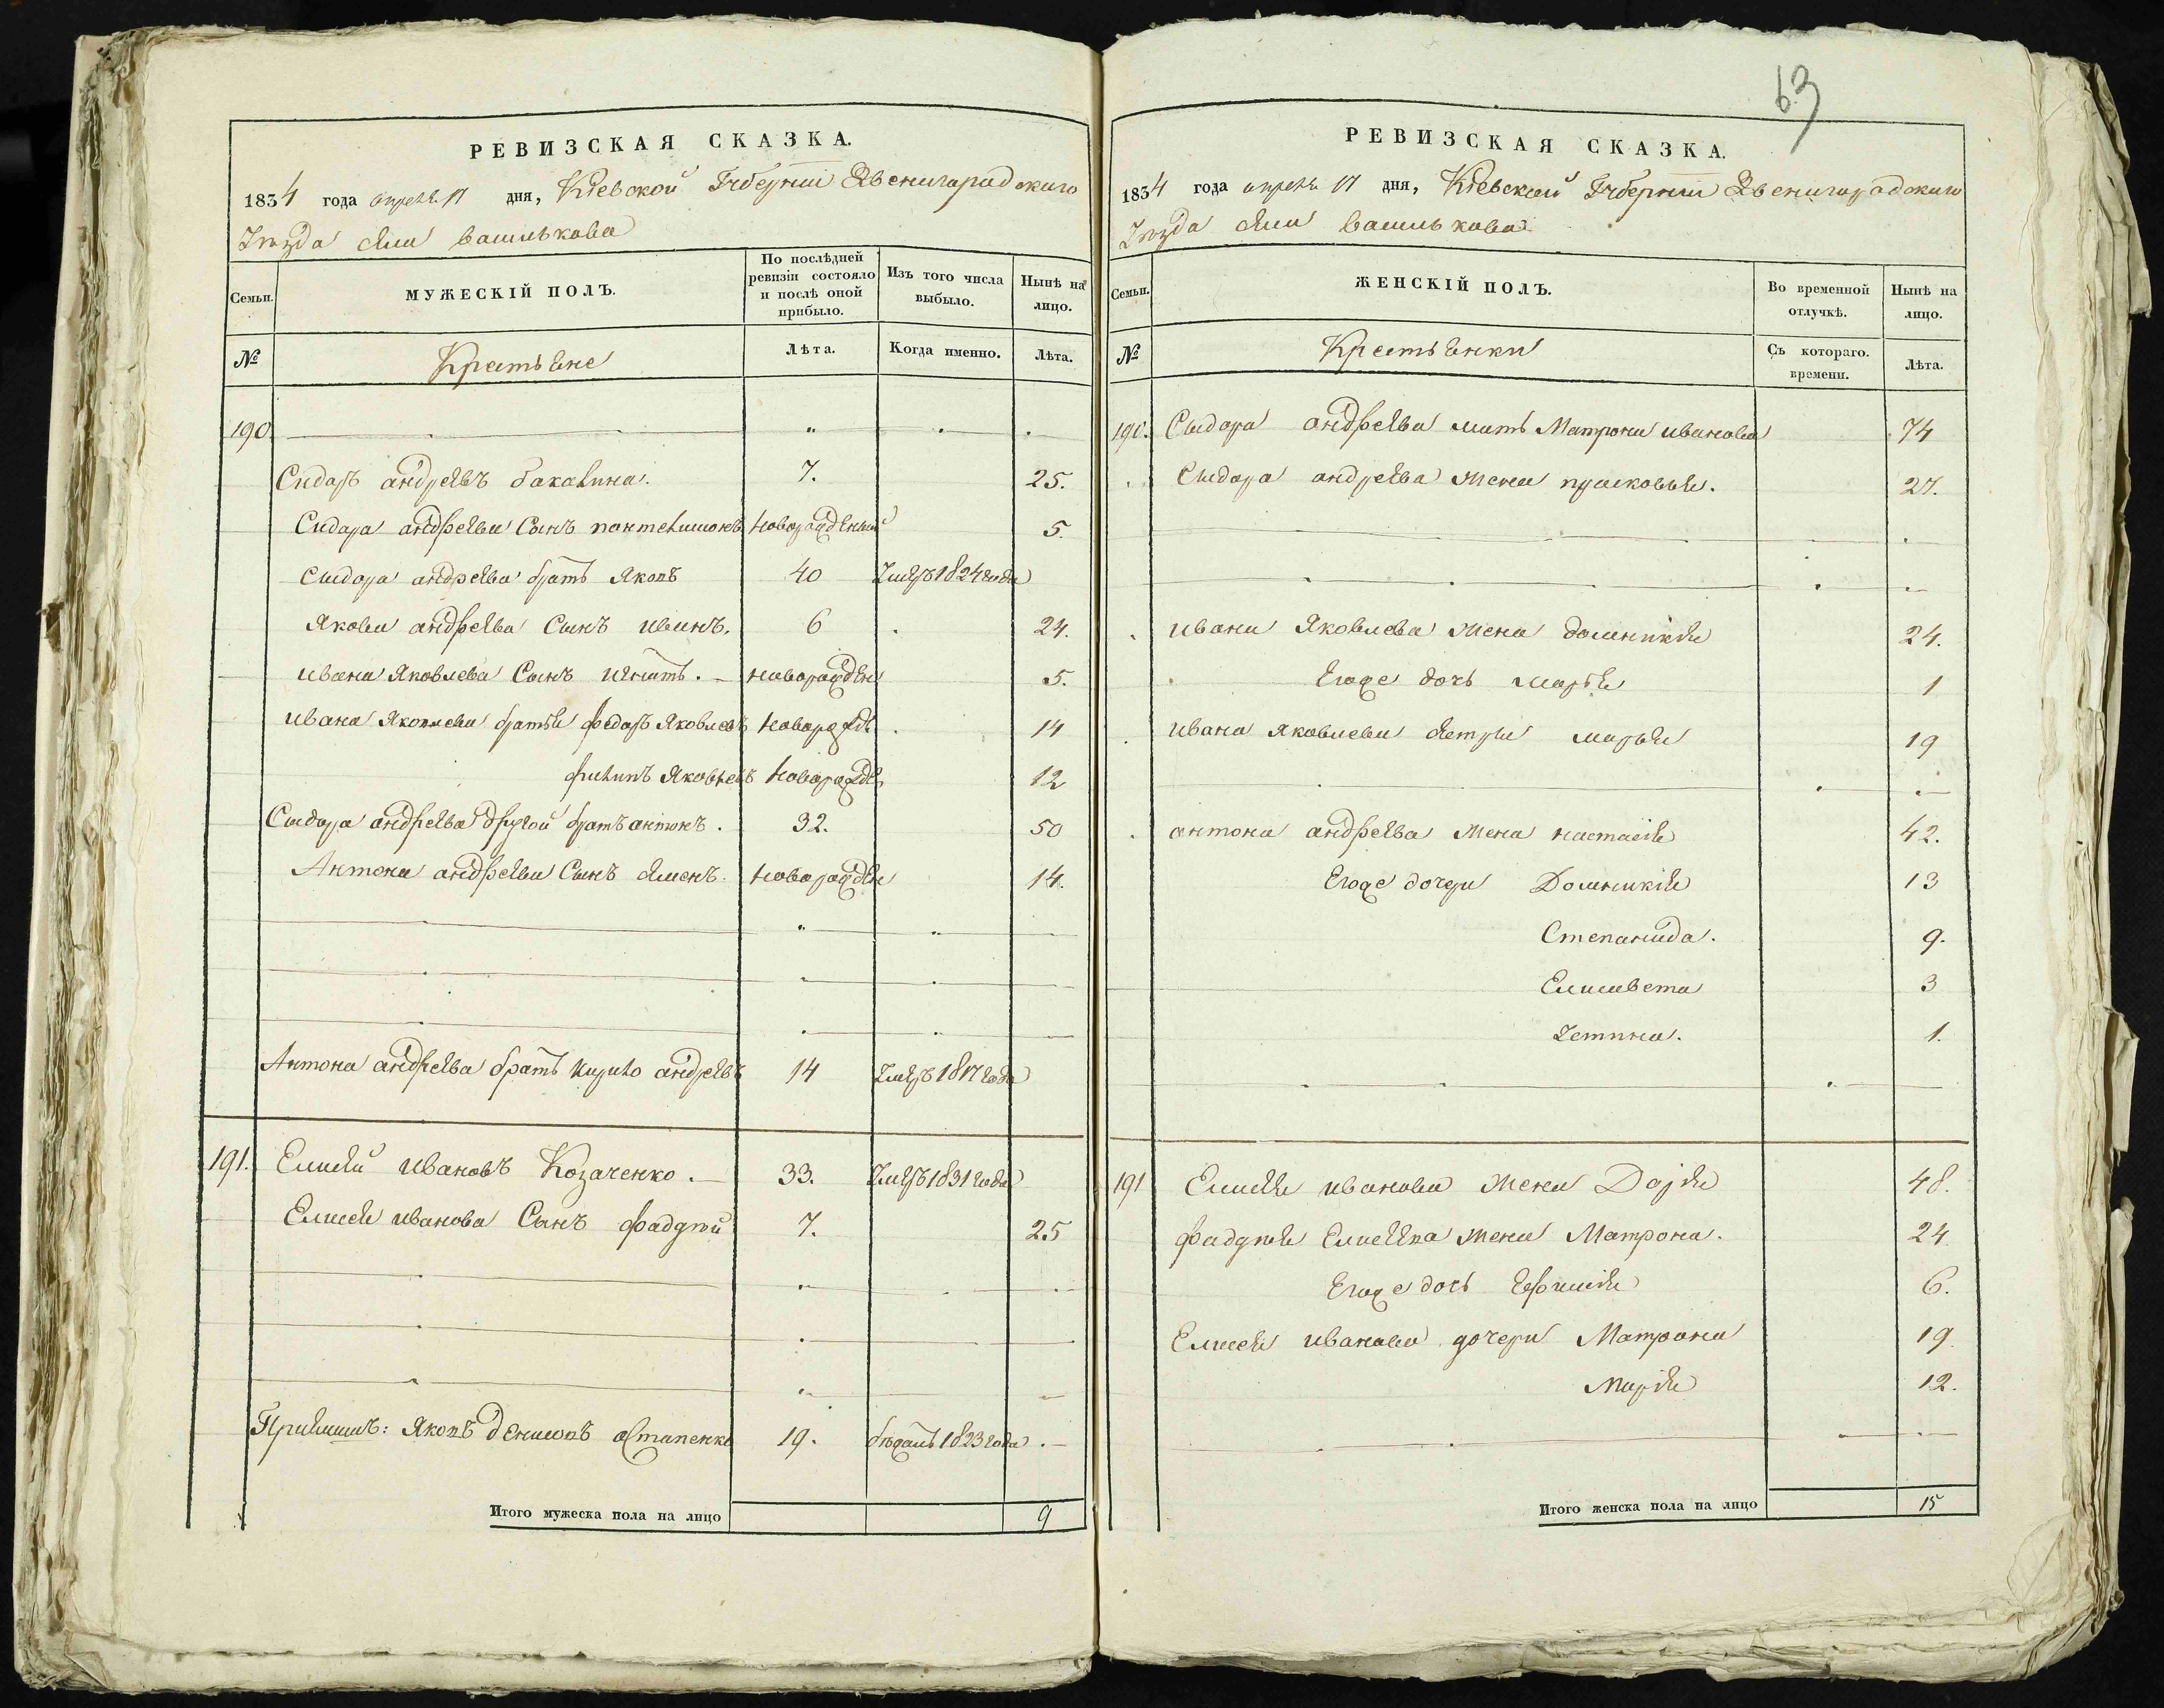 63
РЕВИЗСКАЯ СКАЗКА.
1834 года апреля 17 дня, Кіевской Губерніи Звенигарадскаго
Уѣзда села Василькова
Семьи.
МУЖЕСКІЙ ПОЛЪ.
По послѣдней ревизіи состояло и послѣ оной прибыло.
Изъ того числа выбыло.
Нынѣ на лицо.
№
Крестьяне
Лѣта.
Когда именно.
Лѣта.
190.
Сидаръ андреевъ бакалина. 7. 25.
Сидара андреева Сынъ пантелимонъ новорожденый 5.
Сидара андреева братъ Яковъ 40 Умеръ 1824 года
Якова андреева Сынъ иванъ. 6 24.
ивана Яковлева Сынъ игнатъ. новорожден 5.
ивана Яковлева братья федаръ Яковлевъ новорожде 14
филипъ Яковлевъ новорожде 12
Сидара андреева другой братъ антонъ. 32. 50
Антона андреева Сынъ семенъ. новорожден 14.
Антона андреева братъ кирило андреевъ 14 Умеръ 1817 года
191. Елисей ивановъ Козаченко. 33. Умеръ 1831 года
Елисея иванова Сынъ фадѣй 7. 25
Яковъ денисовъ остапенко 19. бѣжалъ 1823 года
Итого мужеска пола на лицо 9
РЕВИЗСКАЯ СКАЗКА.
1834 года апреля 17 дня, Кіевской Губерніи Звенигарадскаго
Уѣзда села Василькова
Семьи.
ЖЕНСКІЙ ПОЛЪ.
Во временной отлучкѣ.
Нынѣ на лицо.
№
Крестьянки
Съ котораго. времени.
Лѣта.
190. Сидара андреева мать Матрона иванова 74
Сидара андреева жена прасковья. 27.
ивана Яковлева жена домникія 24.
Егоже дочь марія 1
ивана Яковлева сестра марья 19
антона андреева жена настасія 42.
Егоже дочери Домникія 13
Степанида. 9.
Елисавета 3
1.
191 Елисея иванова жена Дарія 48.
фадѣя Елисеева жена Матрона. 24
Егоже дочь Ефимія 6.
Елисея иванова дочери Матрона 19
Марія 12.
Итого женска пола на лицо 15